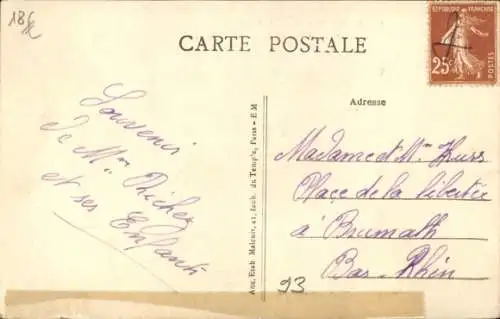 186
CARTE POSTALE
REPUBLIQUE FRANÇAISE
25c
POSTES
Adresse
Souvenir
de Mme Richez
et ses Enfants
Anc. Etab. Malcuit, 41, faub. du Temple, Paris - E M
Madame et Mr Kurs
Place de la libertée
à Brumath
Bas-Rhin
93